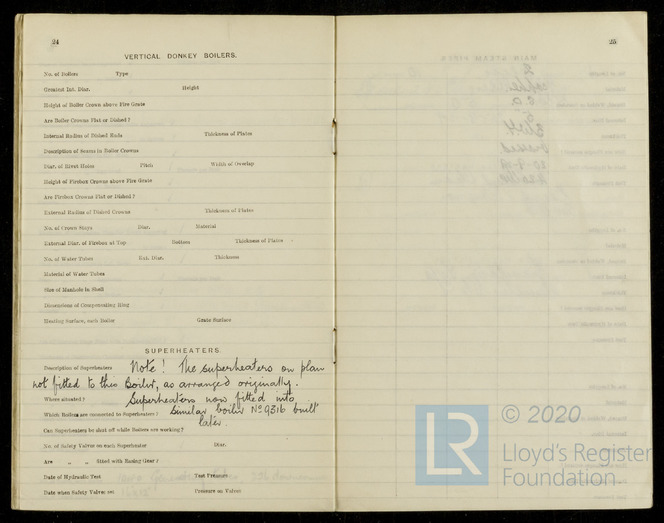 24
VERTICAL DONKEY BOILERS.
No. of Boilers Type
Greatest Int. Diar. Height
Height of Boiler Crown above Fire Grate
Are Boiler Crowns Flat or Dished?
Internal Radius of Dished Ends Thickness of Plates
Description of Seams in Boiler Crowns
Diar. of Rivet Holes Pitch Width of Overlap
Height of Firebox Crowns above Fire Grate
Are Firebox Crowns Flat or Dished?
External Radius of Dished Crowns Thickness of Plates
No. of Crown Stays Diar. Material
External Diar. of Firebox at Top Bottom Thickness of Plates
No. of Water Tubes Ext. Diar. Thickness
Material of Water Tubes
Size of Manhole in Shell
Dimensions of Compensating Ring
Heating Surface, each Boiler Grate Surface
SUPERHEATERS.
Description of Superheaters Note! The superheaters on plan
not fitted to this Boiler, as arranged originally.
Where situated? Superheaters now fitted into
Which Boilers are connected to Superheaters? Similar boiler No 9316 built
Can Superheaters be shut off while Boilers are working? later.
No. of Safety Valves on each Superheater Diar.
Are " " fitted with Easing Gear?
Date of Hydraulic Test Test Pressure
Date when Safety Valves set Pressure on Valves
25
MAIN STEAM PIPES
LR
© 2020
Lloyd's Register
Foundation